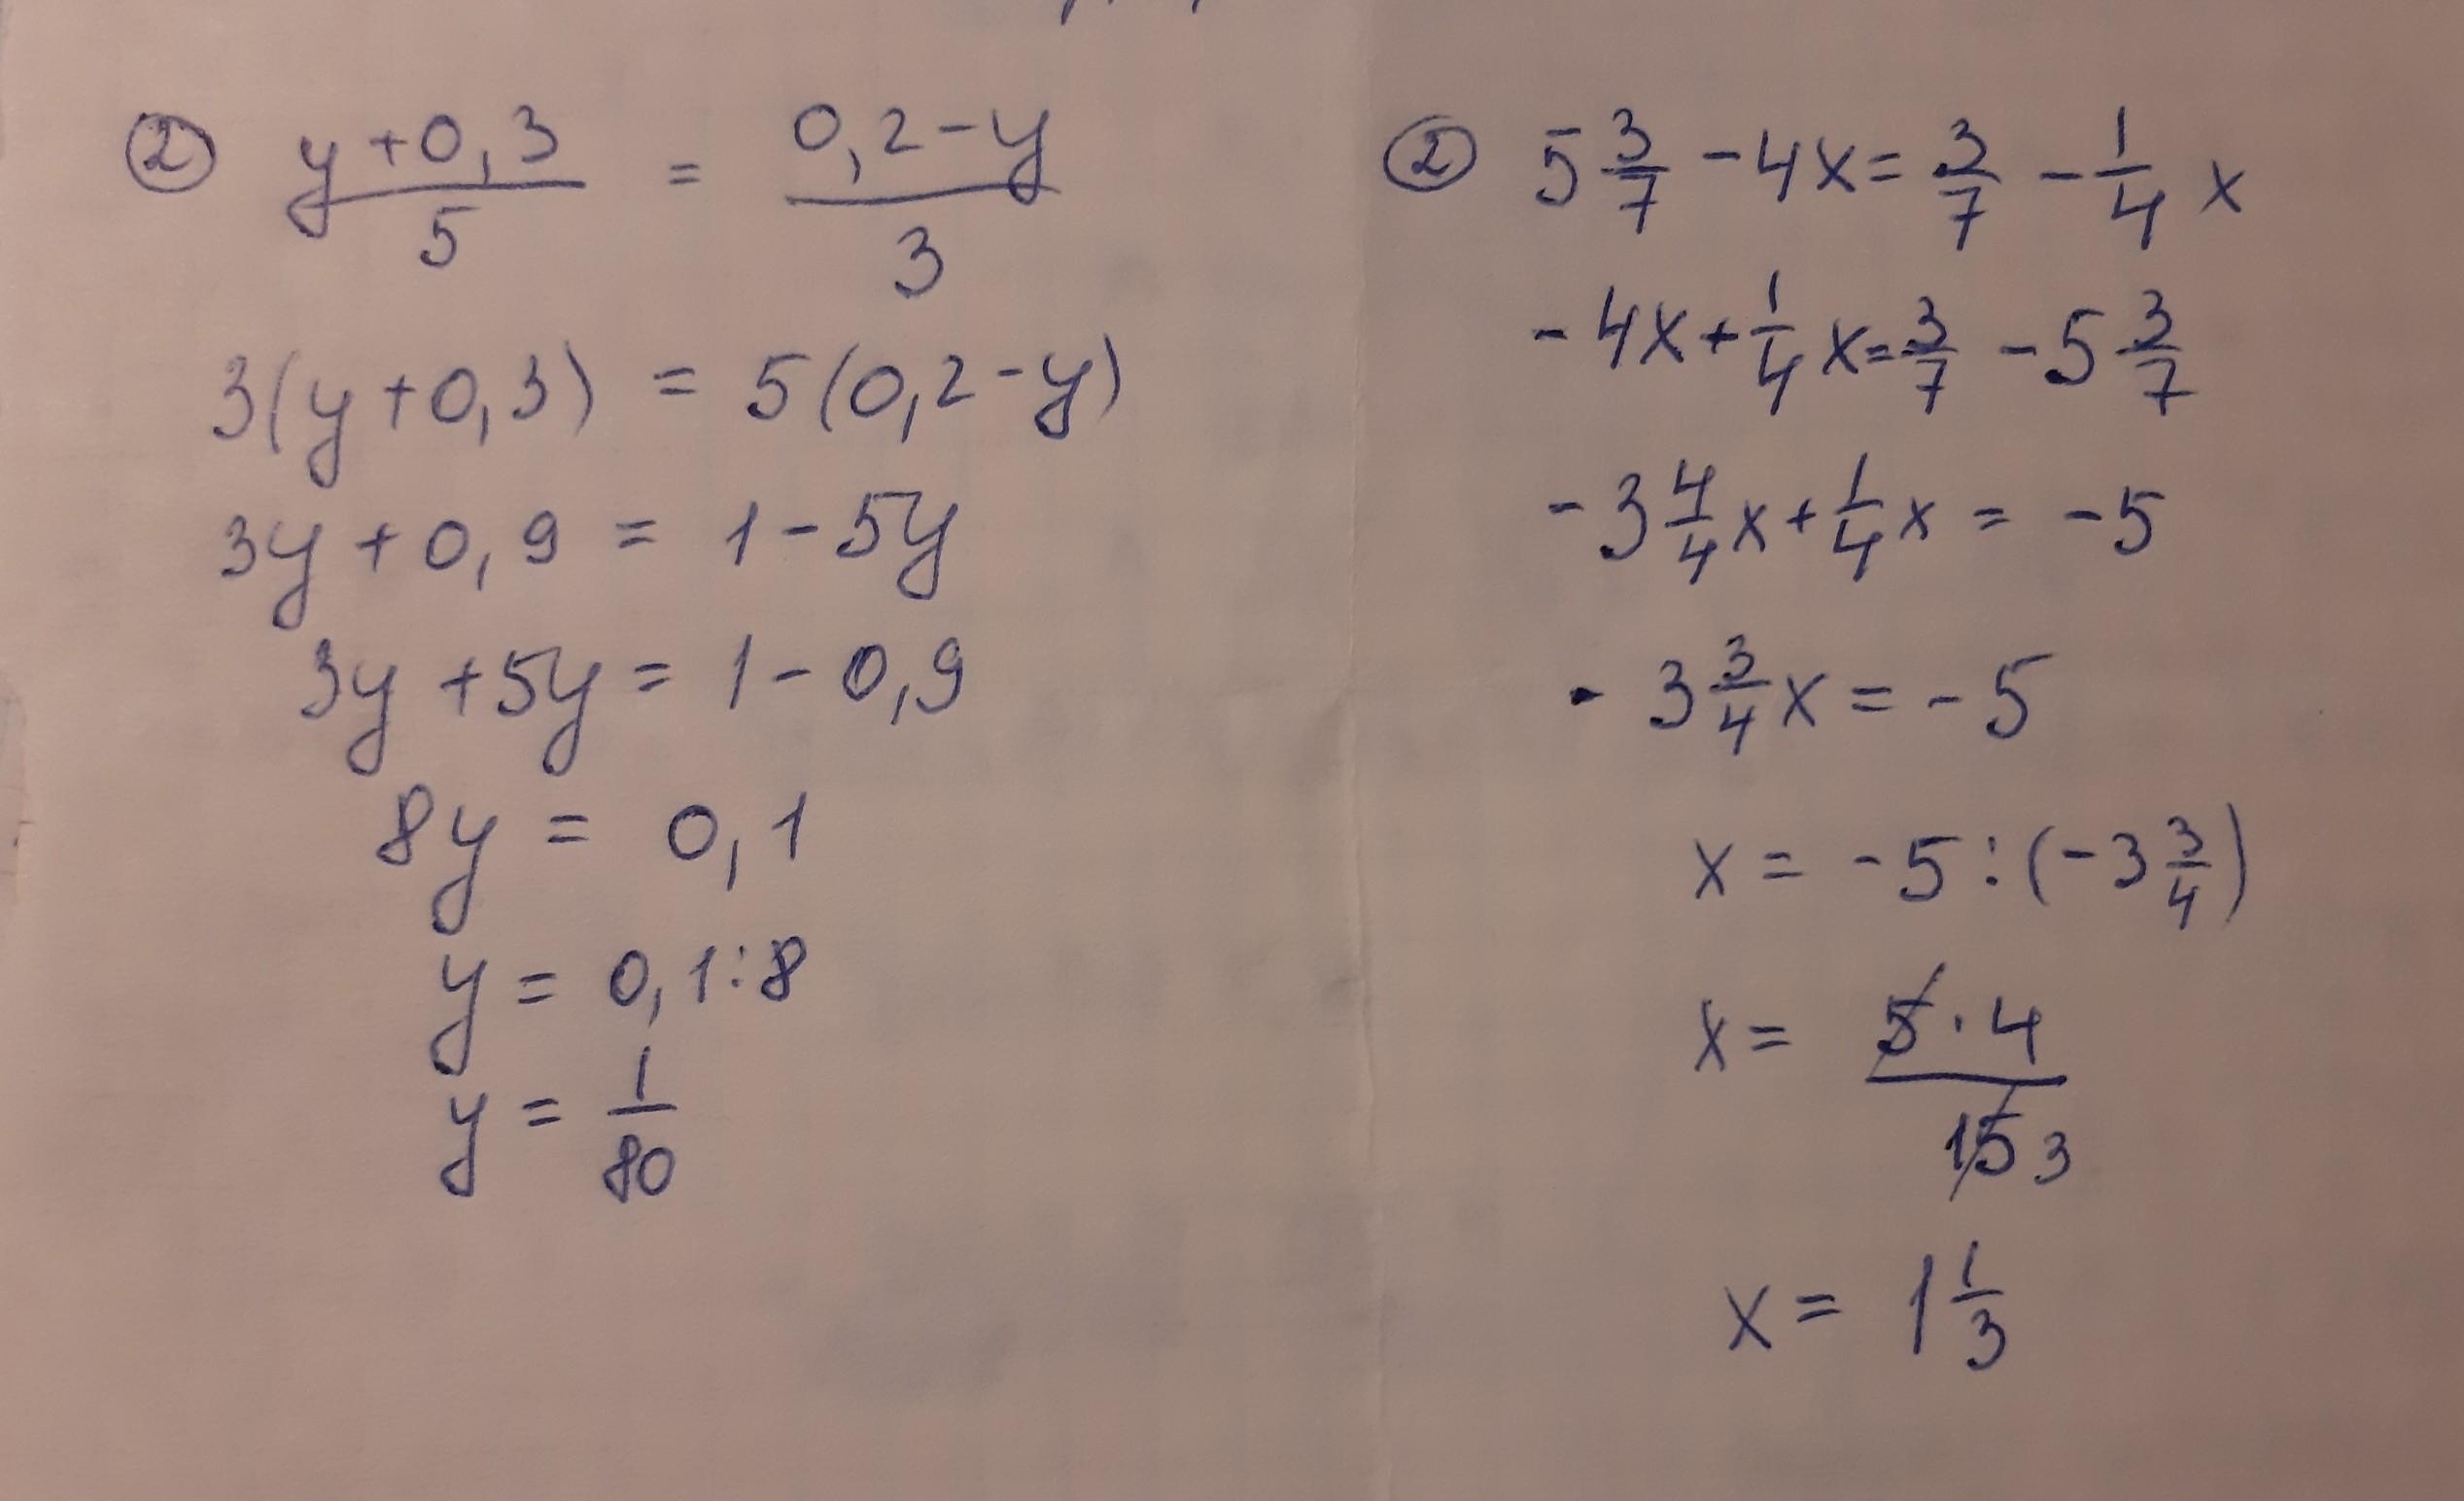 ② (y+0,3)/5 = (0,2-y)/3
3(y+0,3) = 5(0,2-y)
3y+0,9 = 1-5y
3y+5y = 1-0,9
8y = 0,1
y = 0,1:8
y = 1/80
② 5 3/7 - 4x = 3/7 - 1/4 x
-4x + 1/4 x = 3/7 - 5 3/7
-3 4/4 x + 1/4 x = -5
-3 3/4 x = -5
x = -5:(-3 3/4)
x = 5·4/15 3
x = 1 1/3